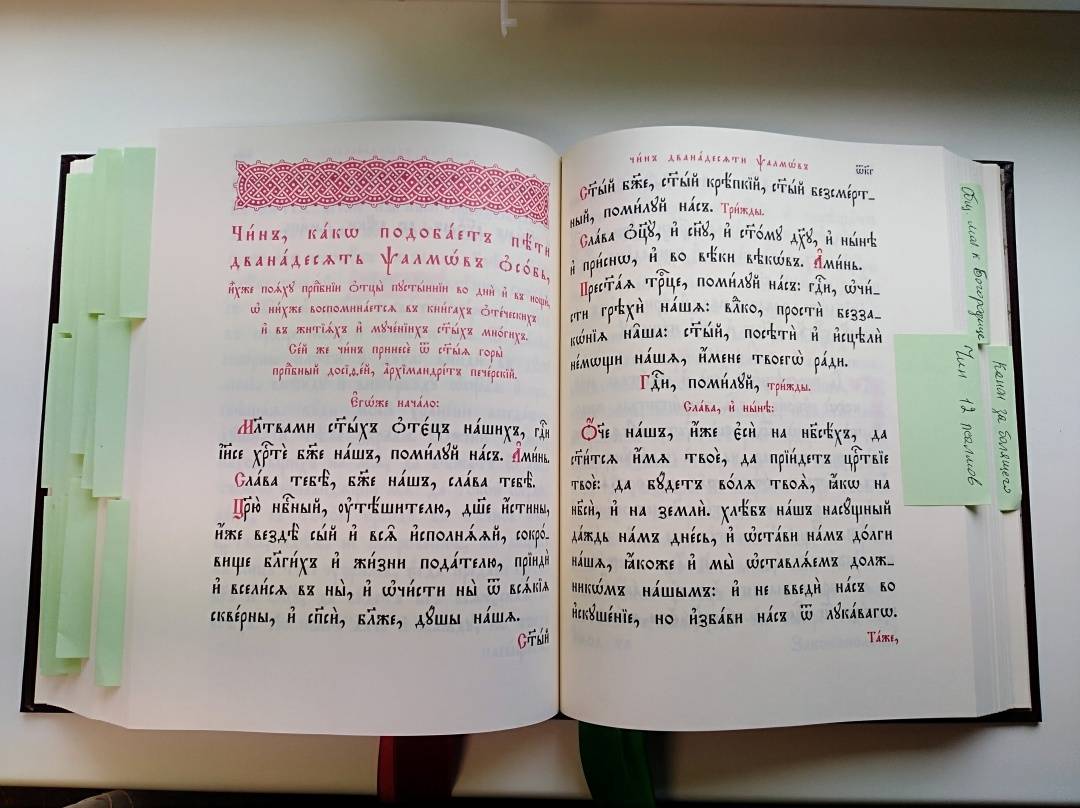 Чи́нъ, ка́кѡ подоба́етъ пѣ́ти
двана́десѧть ѱалмѡ́въ ѻ҆со́бь,
и҆̀хже поѧ́ху прпⷣбнїи ѻ҆тцы̀ пусты́ннїи во днѝ и҆ въ нощѝ,
ѡ҆ ни́хже воспомина́етсѧ въ кни́гахъ ѻ҆те́ческихъ
и҆ въ житїѧ́хъ и҆ мꙋче́нїихъ ст҃ы́хъ мно́гихъ.
Се́й же чи́нъ принесѐ ѿ ст҃ы́ѧ горы̀
прпⷣбный досїѳе́й, а҆рхїмандрі́тъ пече́рскїй.
Е҆гѡ́же нача́ло:
Мл҃твами ст҃ы́хъ ѻ҆те́цъ на́шихъ, гдⷭ҇и
і҆и҃се хрⷭ҇тѐ бж҃е на́шъ, поми́лꙋй на́съ. А҆ми́нь.
Сла́ва тебѣ̀, бж҃е на́шъ, сла́ва тебѣ̀.
Цр҃ю̀ нбⷭ҇ный, ᲂу҆тѣ́шителю, дш҃е и҆́стины,
и҆́же вездѣ̀ сы́й и҆ всѧ̑ и҆сполнѧ́ѧй, сокро́-
вище бл҃ги́хъ и҆ жи́зни пода́телю, прїидѝ
и҆ всели́сѧ въ ны̀, и҆ ѡ҆чи́сти ны̀ ѿ всѧ́кїѧ
скве́рны, и҆ сп҃сѝ, бл҃же, дꙋ́шы на́шѧ.
Ст҃ы́й
чи́нъ двана́десѧти ѱалмѡ́въ
ѿкг
Ст҃ы́й бж҃е, ст҃ы́й крѣ́пкїй, ст҃ы́й безсме́рт_
ный, поми́лꙋй на́съ. Три́жды.
Сла́ва ѻ҆ц҃ꙋ̀, и҆ сн҃ꙋ, и҆ ст҃о́мꙋ дх҃ꙋ, и҆ ны́нѣ
и҆ при́снѡ, и҆ во вѣ́ки вѣкѡ́въ. А҆ми́нь.
Прест҃а́ѧ трⷪ҇це, поми́лꙋй на́съ: гдⷭ҇и, ѡ҆чи́_
сти грѣхѝ на́шѧ: влⷣко, простѝ безза_
кѡ́нїѧ на̑ша: ст҃ы́й, посѣтѝ и҆ и҆сцѣлѝ
не́мѡщи на́шѧ, и҆́мене твоегѡ̀ ра́ди.
Гдⷭ҇и, поми́лꙋй, три́жды.
Сла́ва, и҆ ны́нѣ:
Ѻ҆́ч҃е на́шъ, и҆́же є҆сѝ на нб҃сѣ́хъ, да
ст҃и́тсѧ и҆́мѧ твоѐ, да прїи́детъ црⷭ҇твїе
твоѐ: да бꙋ́детъ во́лѧ твоѧ̀, ꙗ҆́кѡ на
нб҃сѝ, и҆ на землѝ. хлѣ́бъ на́шъ насꙋ́щный
да́ждь на́мъ дне́сь, и҆ ѡ҆ста́ви на́мъ до́лги
на́шѧ, ꙗ҆́коже и҆ мы̀ ѡ҆ставлѧ́емъ долж_
никѡ́мъ на́шымъ: и҆ не введѝ на́съ во
и҆скꙋше́нїе, но и҆зба́ви на́съ ѿ лꙋка́вагѡ.
Та́же,
к Богородице
Чин 12 псалмов
Канон за болящего